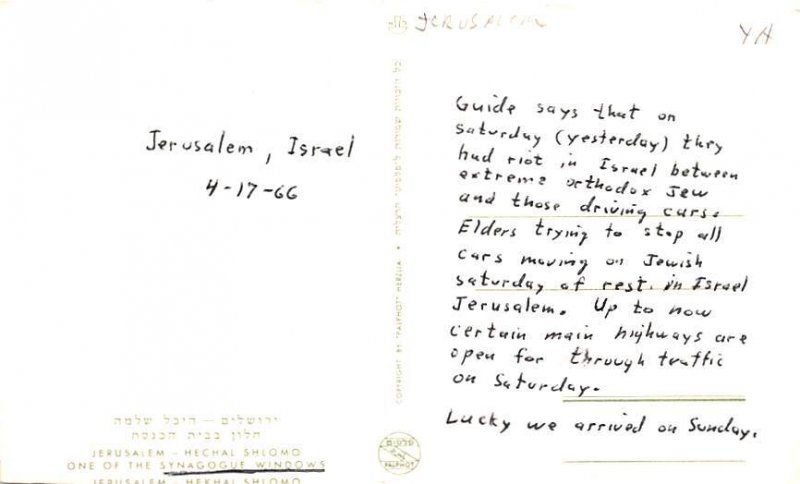 JERUSALEM
YA
Jerusalem, Israel
4-17-66
Guide says that on
Saturday (yesterday) they
had riot in Israel between
extreme orthodox Jew
and those driving cars.
Elders trying to stop all
cars moving on Jewish
Saturday of rest. in Israel
Jerusalem. Up to now
certain main highways are
open for through traffic
on Saturday.
Lucky we arrived on Sunday.
כל הזכויות שמורות
COPYRIGHT BY "PALPHOT" HERZLIA
ירושלים — היכל שלמה
חלון בבית הכנסת
JERUSALEM - HECHAL SHLOMO
ONE OF THE SYNAGOGUE WINDOWS
JERUSALEM - HEKHAL SHLOMO
פלפוט
PALPHOT